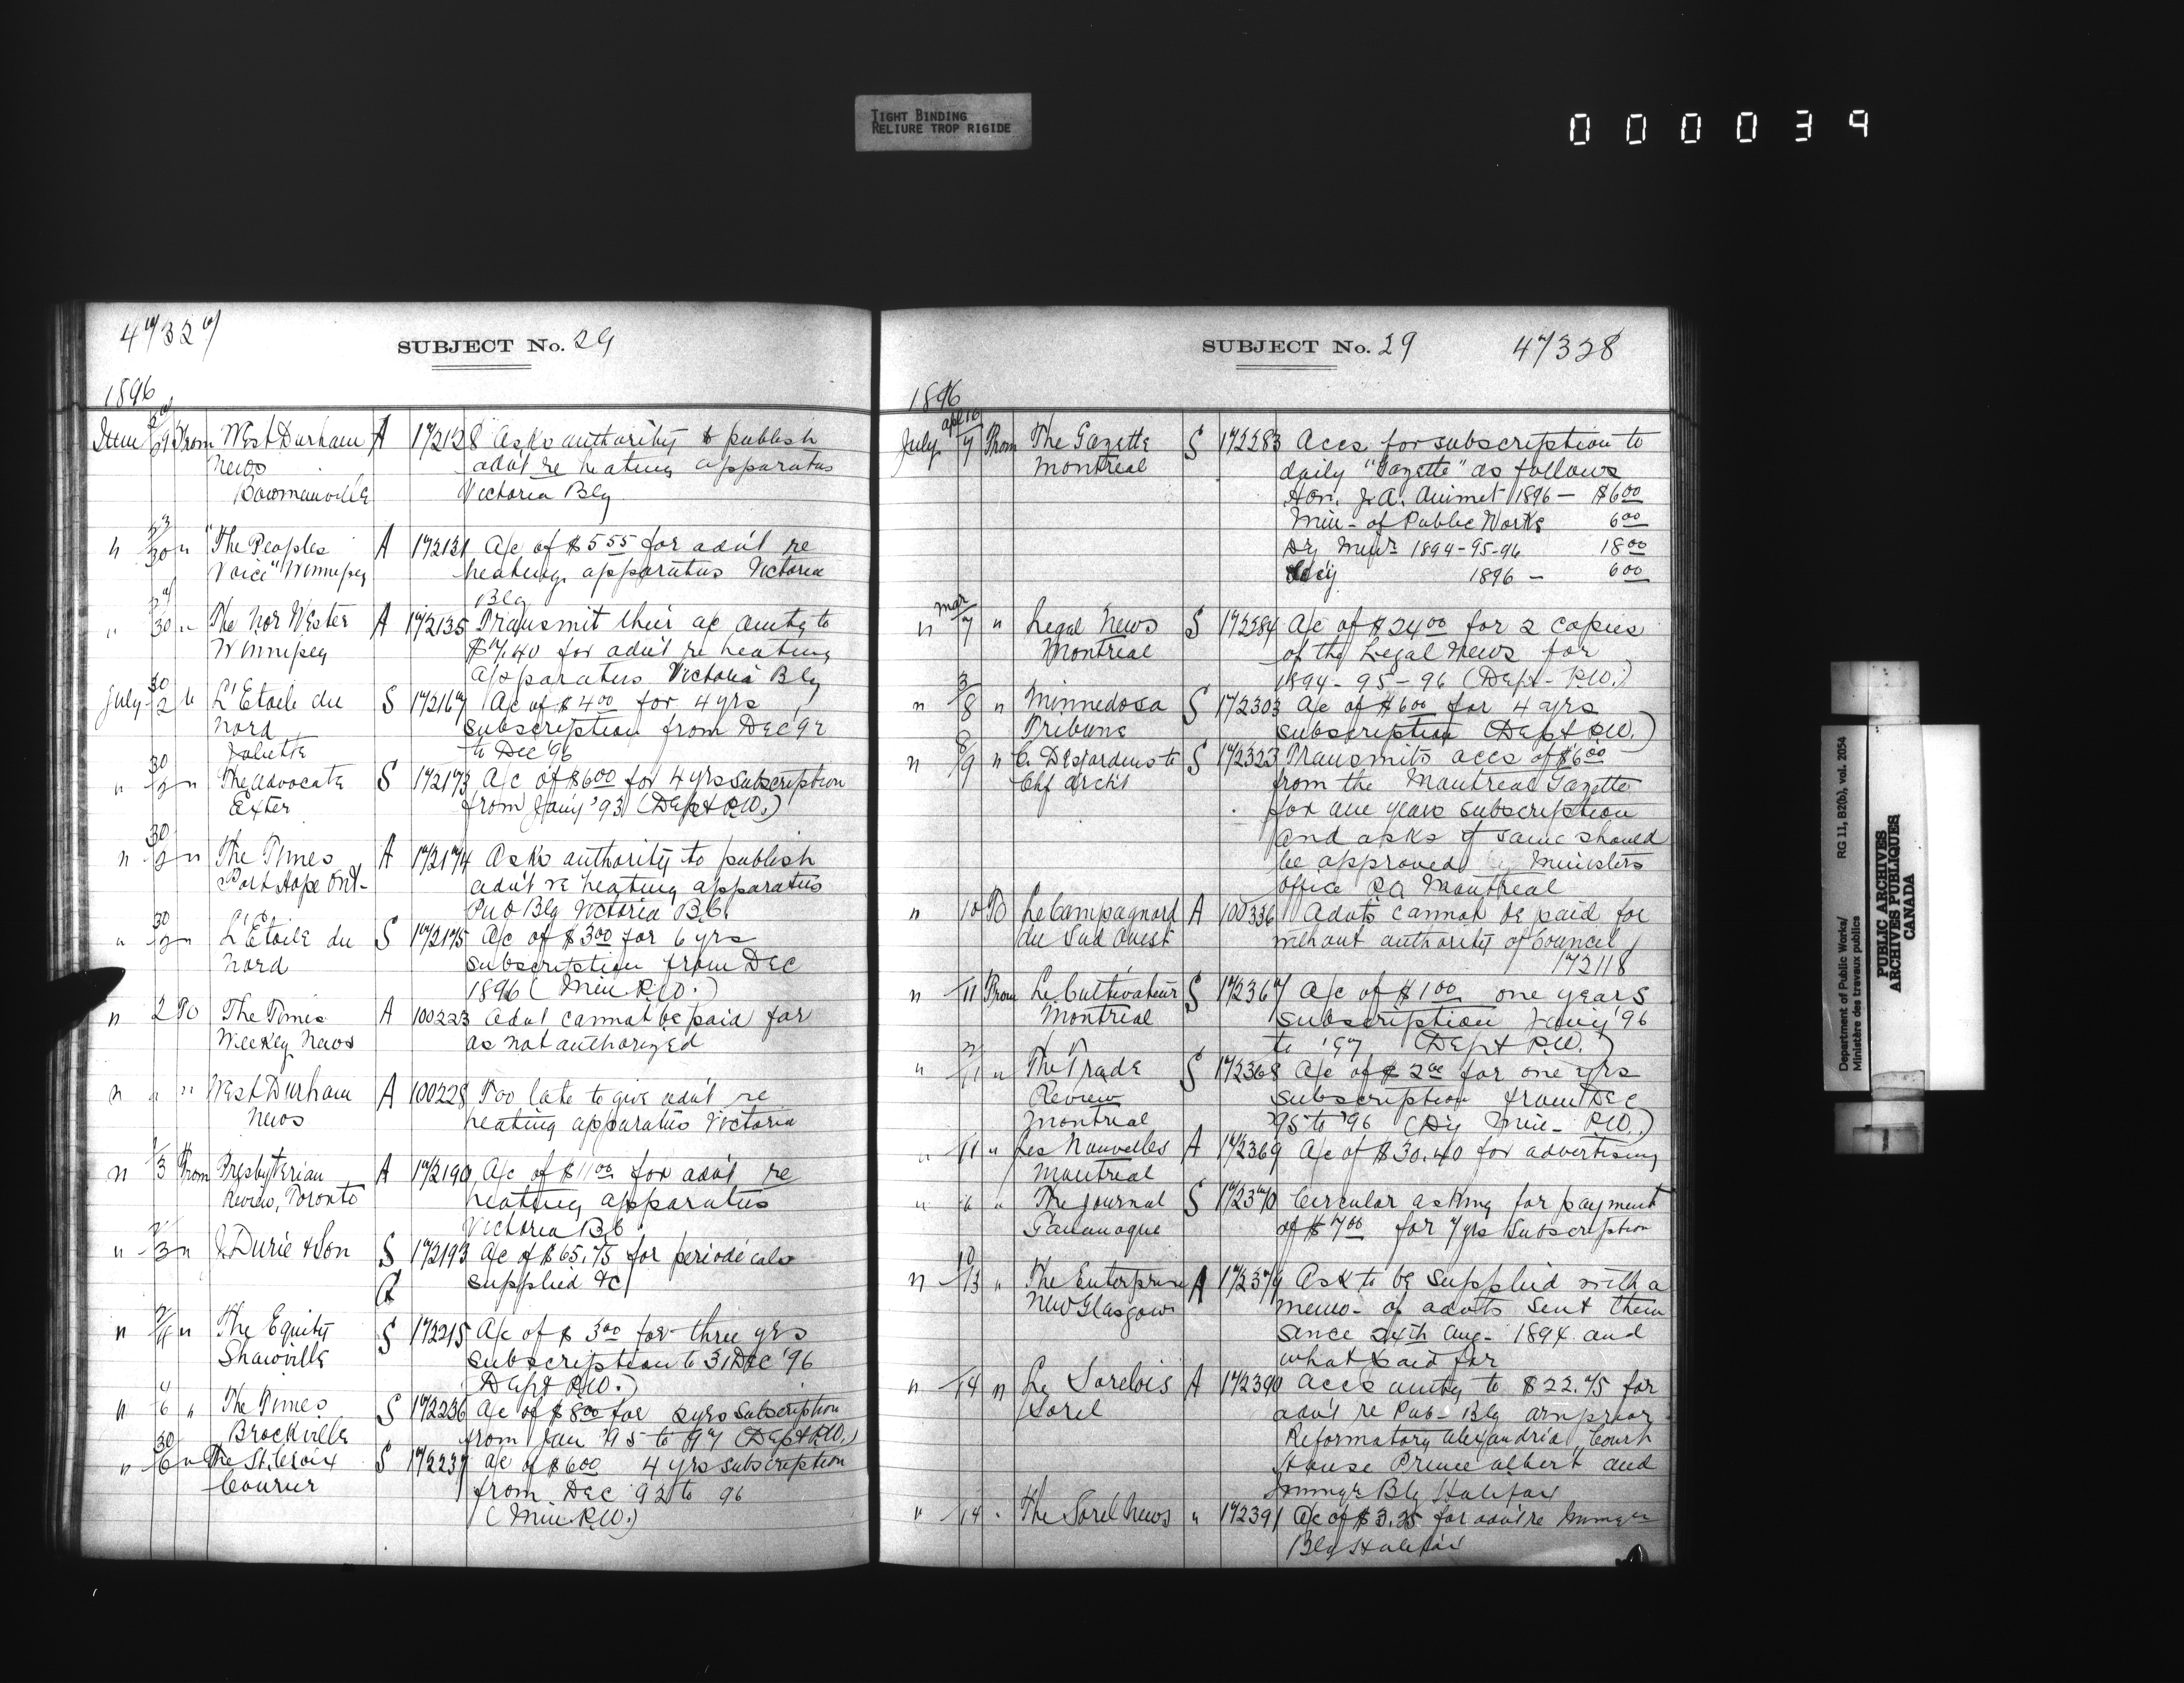 TIGHT BINDING
RELIURE TROP RIGIDE
000039
47327
SUBJECT No. 29
1896
June 29 From West Durham A 172128 Asks authority to publish
News advt re heating apparatus
Bowmanville Victoria Blg
" 23/30 " "The Peoples A 172131 A/c of $5.55 for advt re
Voice" Winnipeg heating apparatus Victoria
Blg
" 30 " The Nor Wester A 172135 Transmit their a/c amtg to
Winnipeg $7.40 for advt re heating
apparatus Victoria Blg
July 30/2 " L'Etoile du S 172167 A/c of $4.00 for 4 yrs
Nord subscription from Dec '92
Joliette to Dec '96
" 30/2 " The Advocate S 172173 A/c of $6.00 for 4 yrs subscription
Exter from Jany '93 (Dept P.W.)
" 30/2 " The Times A 172174 Asks authority to publish
Port Hope Ont- advt re heating apparatus
Pub Blg Victoria B.C.
" 30/2 " L'Etoile du S 172175 A/c of $3.00 for 6 yrs
Nord subscription from Dec
1896 (Min P.W.)
" 2 To The Times A 100223 Advt cannot be paid for
Weekly News as not authorized
" " " West Durham A 100228 Too late to give advt re
News heating apparatus Victoria
" 1/3 From Presbyterian A 172190 A/c of $11.00 for advt re
Review, Toronto heating apparatus
Victoria B.C
" 2/3 " J. Durie & Son S 172193 A/c of $65.75 for periodicals
A supplied &c
" " The Equity S 172215 A/c of $3.00 for three yrs
Shawville subscription to 31 Dec '96
Dept P.W.)
" 4/6 " The Times S 172236 A/c of $8.00 for 2 yrs subscription
Brockville from Jan '95 to '97 (Dept P.W.)
" 30/6 " The St. Croix S 172237 A/c of $6.00 4 yrs subscription
Courier from Dec 92 to 96
(Min P.W.)
SUBJECT No. 29 47328
1896
apl 16
July 7 From The Gazette S 172283 Accs for subscription to
Montreal daily "Gazette" as follows
Hon. J.A. Ouimet 1896 — $6.00
Min - of Public Works 6.00
Dy Minr 1894-95-96 18.00
Secy 1896 — 6.00
mar
" 7 " Legal News S 172284 A/c of $24.00 for 2 copies
Montreal of the Legal News for
1894-95-96 (Dept - P.W.)
" 3/8 " Minnedosa S 172303 A/c of $6.00 for 4 yrs
Tribune subscription (Dept P.W.)
" 8/9 " C. Desjardins to S 172323 Transmits accs of $6.00
Chf Archt from the Montreal Gazette
for one years subscription
and asks if same should
be approved by Ministers
Office P.O. Montreal
" 10 To Le Campagnard A 100336 Advts cannot be paid for
du Sud Ouest without authority of Council
172118
" 11 From Le Cultivateur S 172367 A/c of $1.00 one years
Montreal subscription Jany '96
to '97 (Dept P.W.)
" 11 " The Trade S 172368 A/c of $2.00 for one yrs
Review subscription from Dec
Montreal '95 to '96 (Dy Min - P.W.)
" 11 " Les Nouvelles A 172369 A/c of $30.40 for advertising
Montreal
" " " The Journal S 172370 Circular asking for payment
Gananoque of $7.00 for 7 yrs subscription
" 10/13 " The Enterprise A 172379 Ask to be supplied with a
New Glasgow memo- of advts sent them
since 24th Aug- 1894 and
what paid for
" 14 " Le Sorelois A 172390 Accs amtg to $22.75 for
Sorel advt re Pub- Blg Arnprior
Reformatory Alexandria, Court
House Prince Albert and
Immgr Blg Halifax
" 14 " The Sorel News " 172391 A/c of $3.25 for advt re Immgr
Blg Halifax
Department of Public Works/ RG 11, B2(b), vol. 2054
Ministère des travaux publics
PUBLIC ARCHIVES
ARCHIVES PUBLIQUES
CANADA